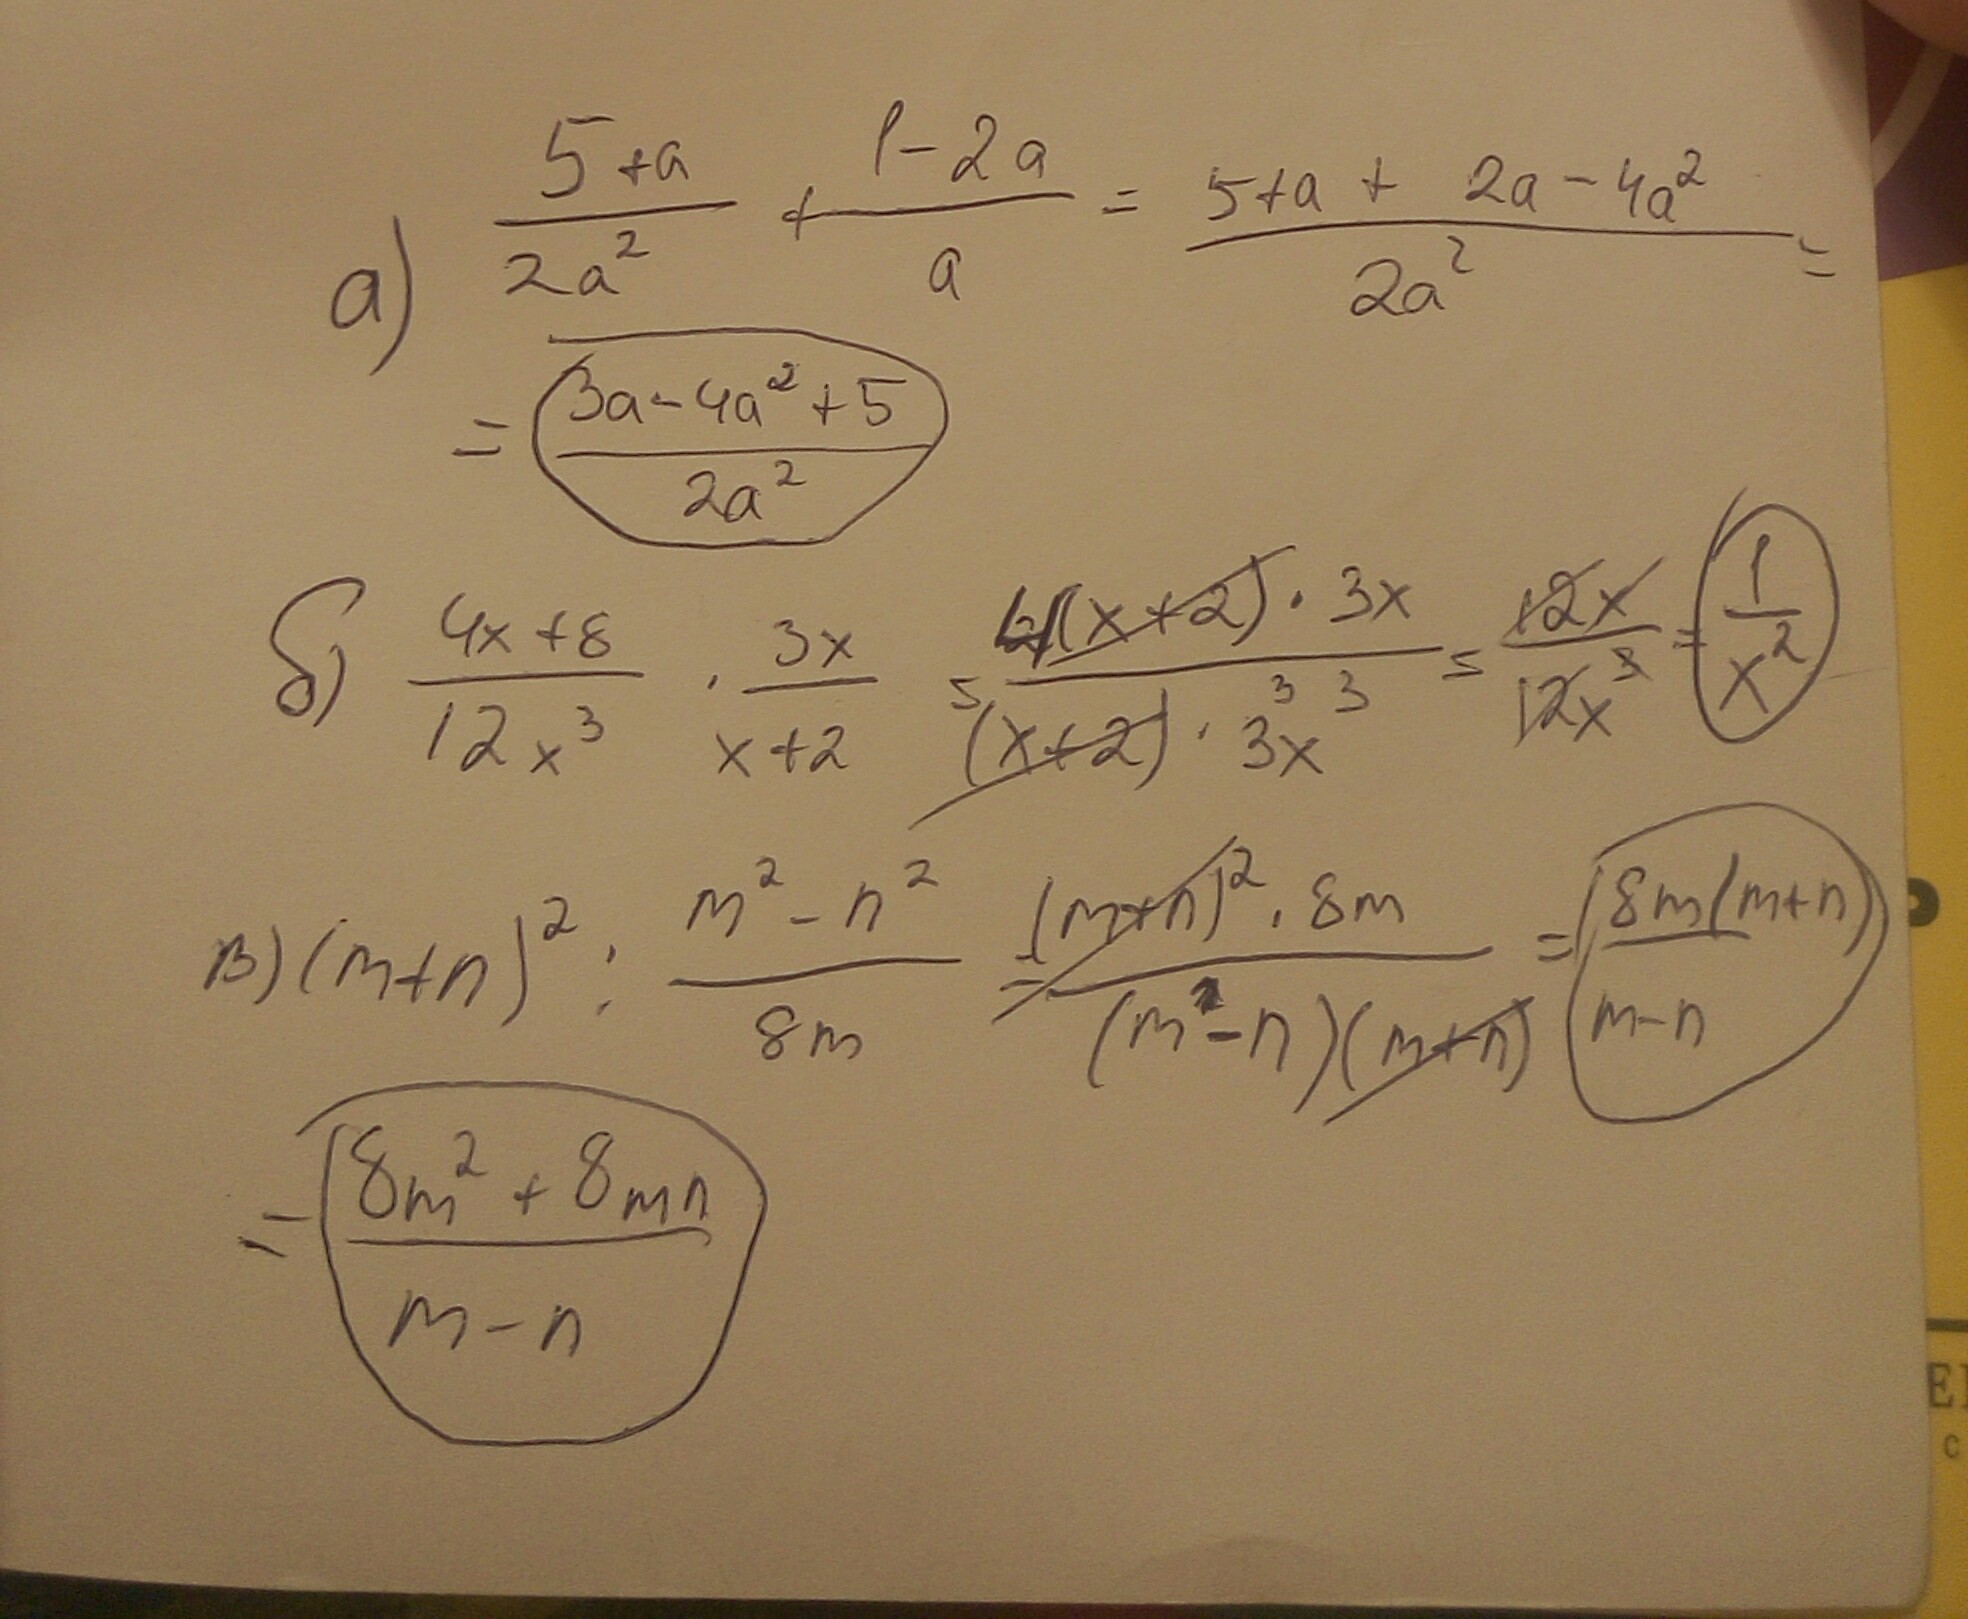 а) (5+a)/(2a²) + (1-2a)/a = (5+a + 2a-4a²)/(2a²) =
= (3a-4a²+5)/(2a²)
б) (4x+8)/(12x³) · 3x/(x+2) = ((x+2)·3x)/((x+2)·3x³) = 12x/12x³ = 1/x²
в) (m+n)² : (m²-n²)/(8m) = ((m+n)²·8m)/((m-n)(m+n)) = 8m(m+n)/(m-n)
= (8m²+8mn)/(m-n)